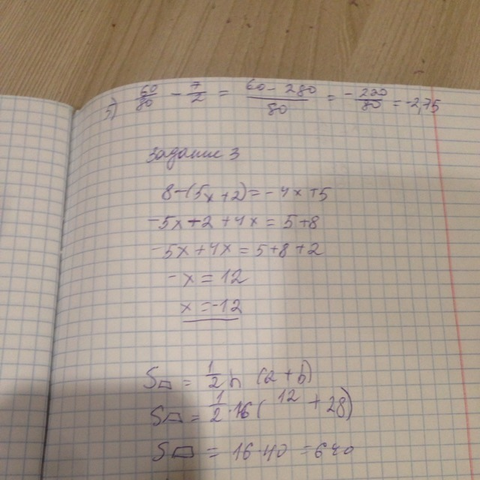 5) 60/80 - 7/2 = 60 - 280/80 = -220/80 = -2,75
Задание 3
8-(5x+2)=-4x+5
-5x+2+4x=5+8
-5x+4x=5+8+2
-x=12
x=-12
S▱ = 1/2 h (a+b)
S▱ = 1/2·16(12+28)
S▱ = 16·40=640